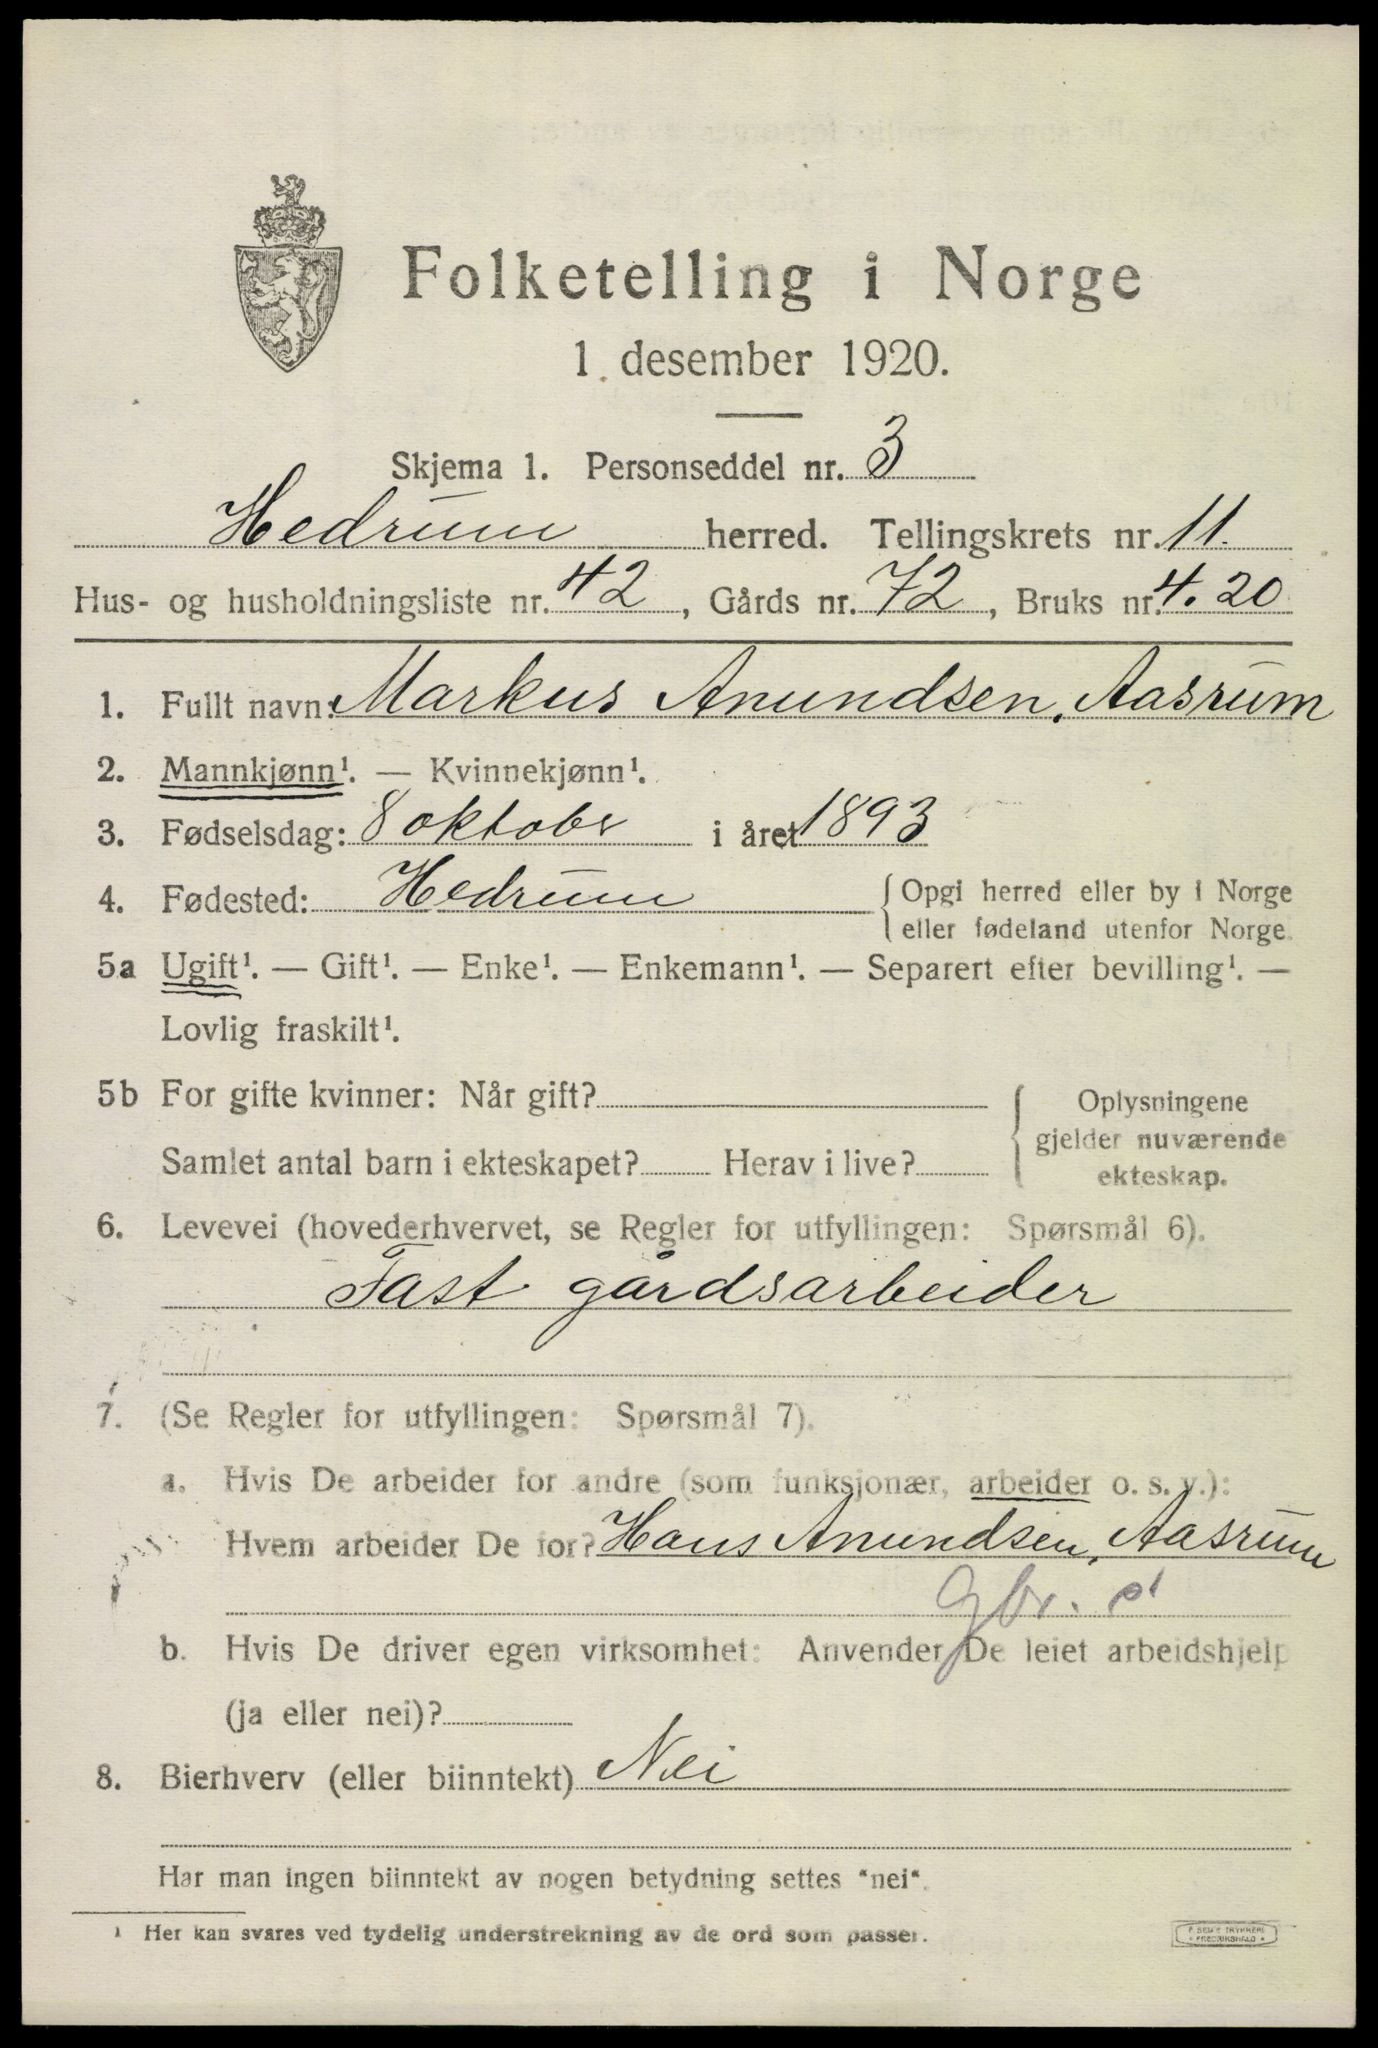 Folketelling i Norge
1. desember 1920.
Skjema 1. Personseddel nr. 3
Hedrum herred. Tellingskrets nr. 11.
Hus- og husholdningsliste nr. 42, Gårds nr. 72, Bruks nr. 4.20
1. Fullt navn: Markus Anundsen, Aasrum
2. Mannkjønn¹. — Kvinnekjønn¹.
3. Fødselsdag: 8 oktobr i året 1893
4. Fødested: Hedrum { Opgi herred eller by i Norge
eller fødeland utenfor Norge.
5a Ugift¹. — Gift¹. — Enke¹. — Enkemann¹. — Separert efter bevilling¹. —
Lovlig fraskilt¹.
5b For gifte kvinner: Når gift? { Oplysningene
gjelder nuværende
Samlet antal barn i ekteskapet? Herav i live?
ekteskap.
6. Levevei (hovederhvervet, se Regler for utfyllingen: Spørsmål 6).
Fast gårdsarbeider
7. (Se Regler for utfyllingen: Spørsmål 7).
a. Hvis De arbeider for andre (som funksjonær, arbeider o. s. v.):
Hvem arbeider De for? Hans Anundsen, Aasrum
Gbr.
b. Hvis De driver egen virksomhet: Anvender De leiet arbeidshjelp
(ja eller nei)?
8. Bierhverv (eller biinntekt) Nei
Har man ingen biinntekt av nogen betydning settes "nei".
¹ Her kan svares ved tydelig understrekning av de ord som passer.
F. SEM'S TRYKKERI
• FREDRIKSHALD •